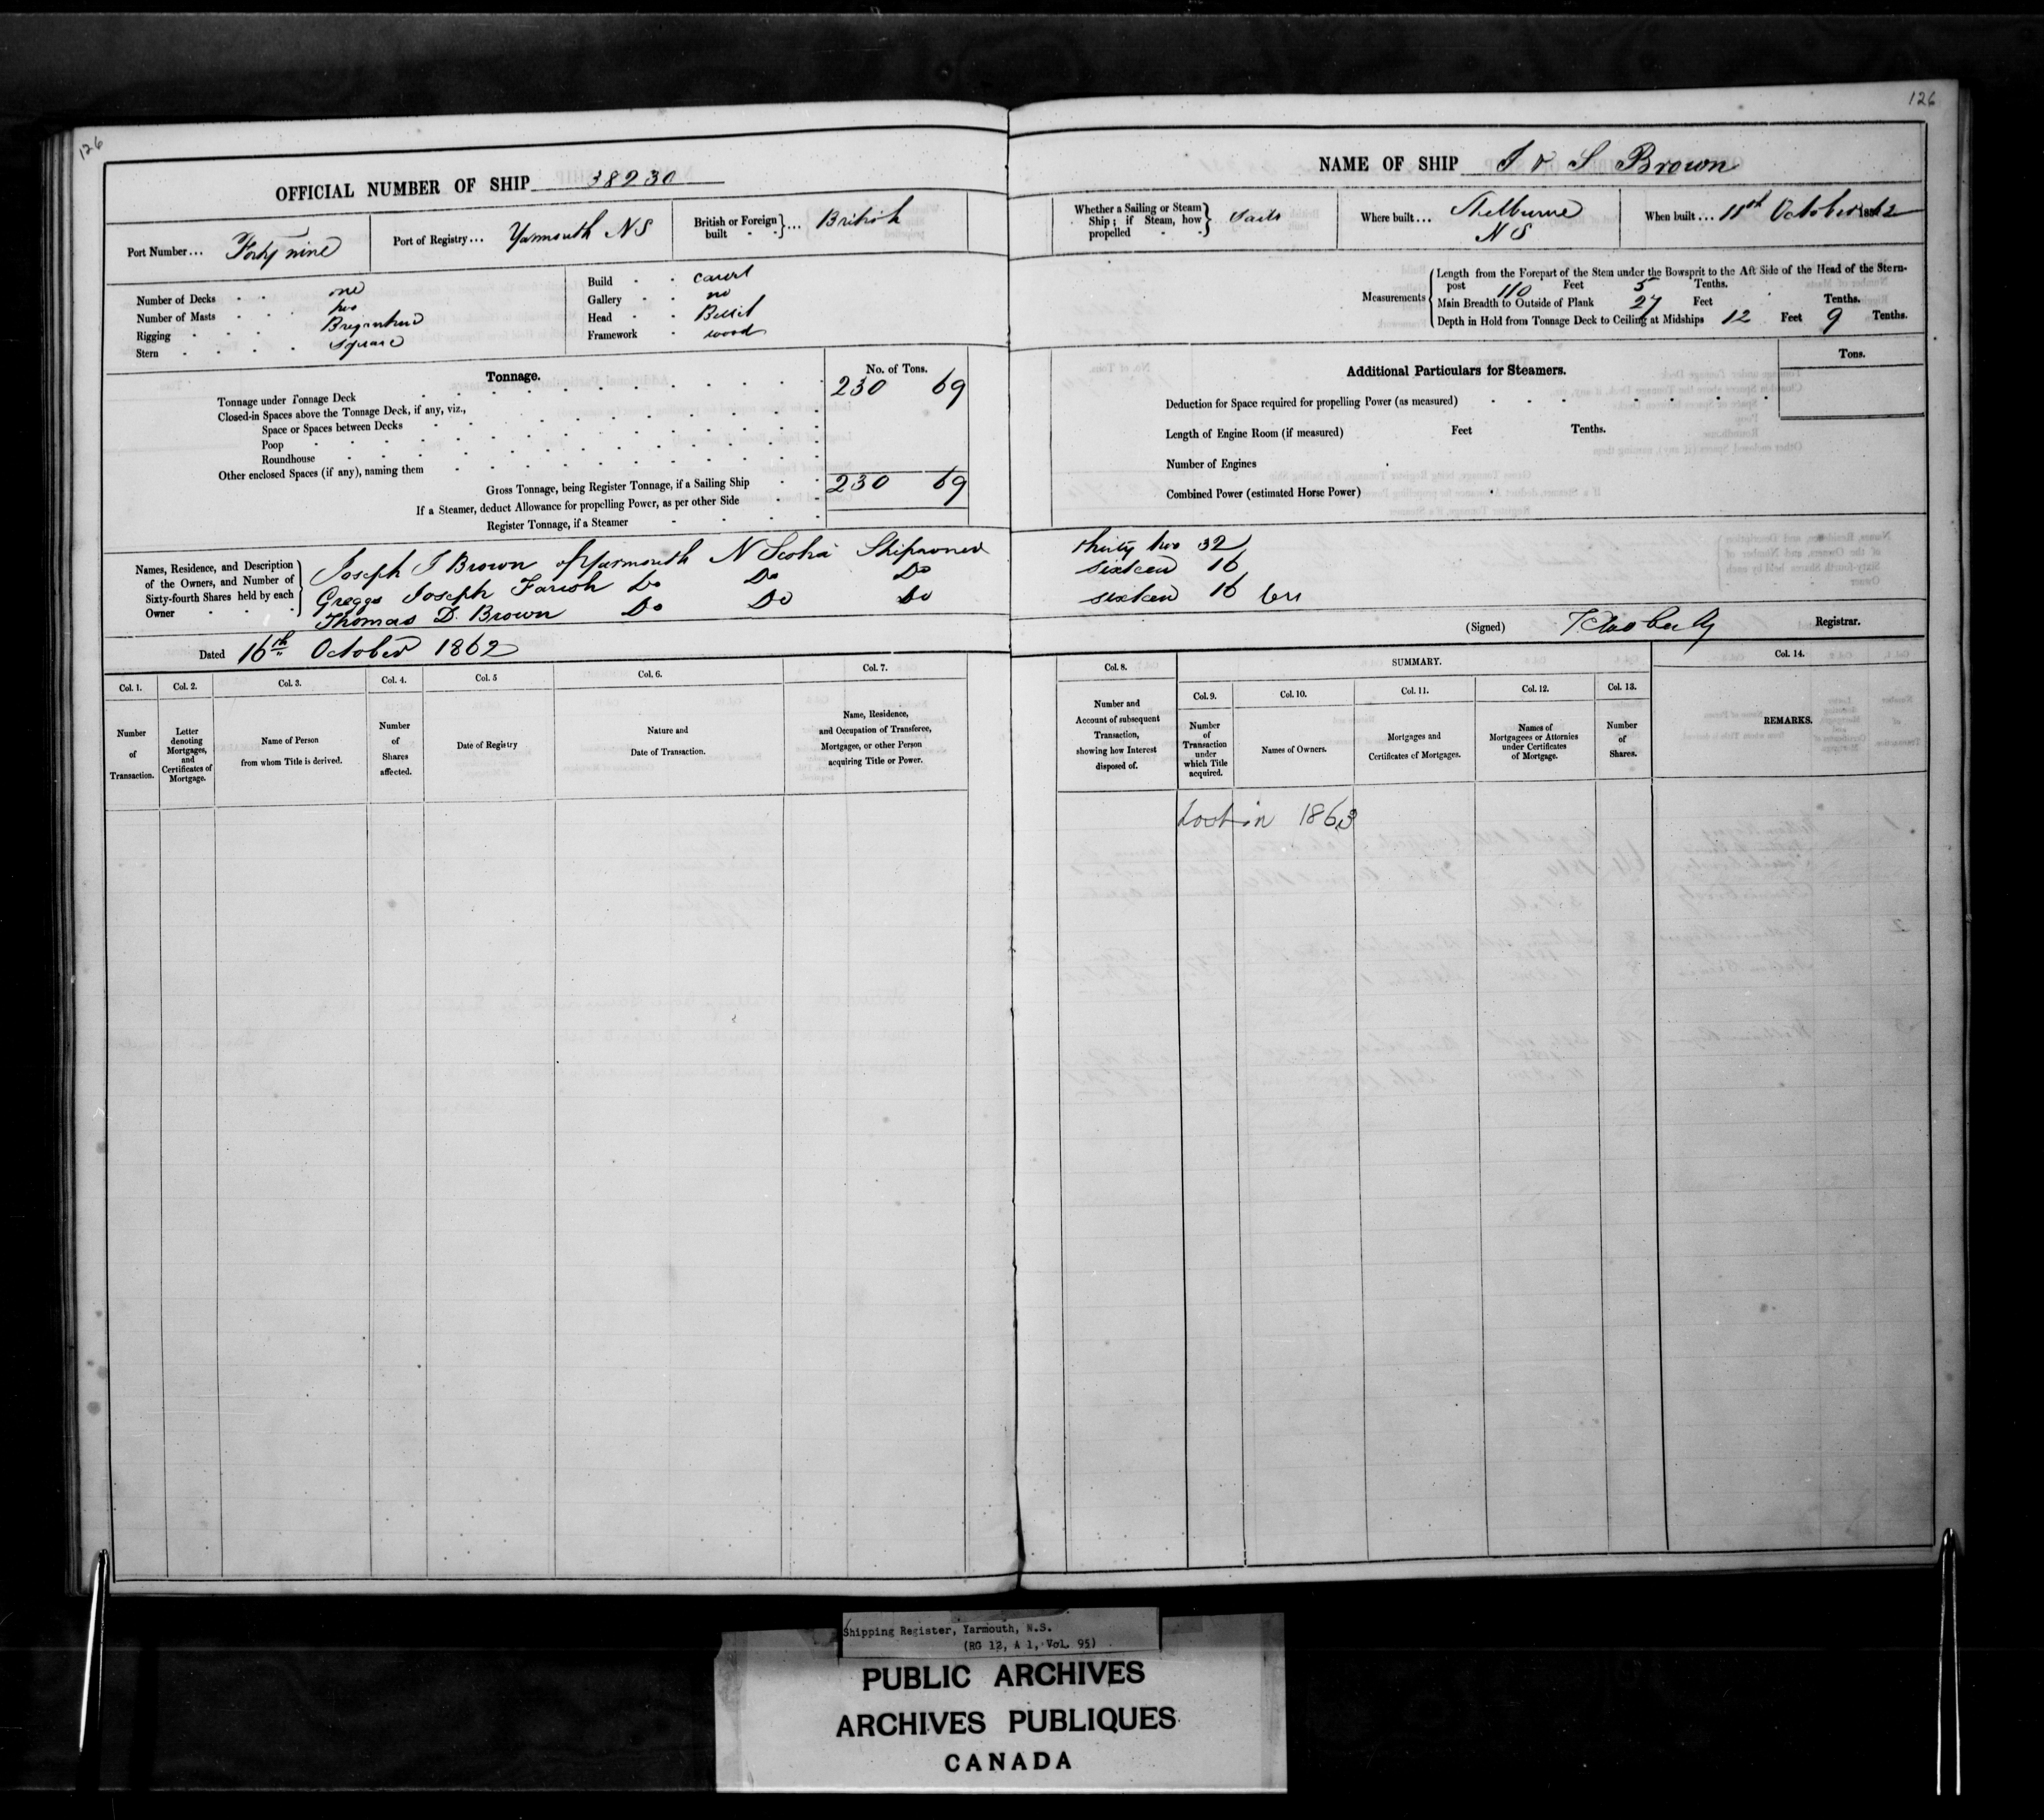 126
OFFICIAL NUMBER OF SHIP 38230
Port Number... Forty nine
Port of Registry... Yarmouth NS
British or Foreign built ... British
Number of Decks one
Number of Masts two
Rigging Brigantine
Stern square
Build carvel
Gallery no
Head Billet
Framework wood
Tonnage.
No. of Tons.
Tonnage under Tonnage Deck 230 69
Closed-in Spaces above the Tonnage Deck, if any, viz.,
Space or Spaces between Decks
Poop
Roundhouse
Other enclosed Spaces (if any), naming them
Gross Tonnage, being Register Tonnage, if a Sailing Ship 230 69
If a Steamer, deduct Allowance for propelling Power, as per other Side
Register Tonnage, if a Steamer
Names, Residence, and Description of the Owners, and Number of Sixty-fourth Shares held by each Owner
Joseph J Brown of Yarmouth N Scotia Shipowner
Joseph Farish Do Do Do
Thomas D. Brown Do Do Do
Dated 16th October 1862
Col. 1.
Number of Transaction.
Col. 2.
Letter denoting Mortgages, and Certificates of Mortgage.
Col. 3.
Name of Person from whom Title is derived.
Col. 4.
Number of Shares affected.
Col. 5
Date of Registry
Col. 6.
Nature and Date of Transaction.
Col. 7.
Name, Residence, and Occupation of Transferee, Mortgagee, or other Person acquiring Title or Power.
126
NAME OF SHIP J & S Brown
Whether a Sailing or Steam Ship; if Steam, how propelled Sails
Where built... Shelburne NS
When built... 11th October 1862
Measurements
Length from the Forepart of the Stem under the Bowsprit to the Aft Side of the Head of the Stern-
post 110 Feet 5 Tenths.
Main Breadth to Outside of Plank 27 Feet Tenths.
Depth in Hold from Tonnage Deck to Ceiling at Midships 12 Feet 9 Tenths.
Additional Particulars for Steamers.
Tons.
Deduction for Space required for propelling Power (as measured)
Length of Engine Room (if measured) Feet Tenths.
Number of Engines
Combined Power (estimated Horse Power)
thirty two 32
sixteen 16
sixteen 16
(Signed) Registrar.
Col. 8.
Number and Account of subsequent Transaction, showing how Interest disposed of.
SUMMARY.
Col. 9.
Number of Transaction under which Title acquired.
Col. 10.
Names of Owners.
Col. 11.
Mortgages and Certificates of Mortgages.
Col. 12.
Names of Mortgagees or Attornies under Certificates of Mortgage.
Col. 13.
Number of Shares.
Col. 14.
REMARKS.
Lost in 1863
Shipping Register, Yarmouth, N.S.
(RG 12, A 1, Vol. 95)
PUBLIC ARCHIVES
ARCHIVES PUBLIQUES
CANADA